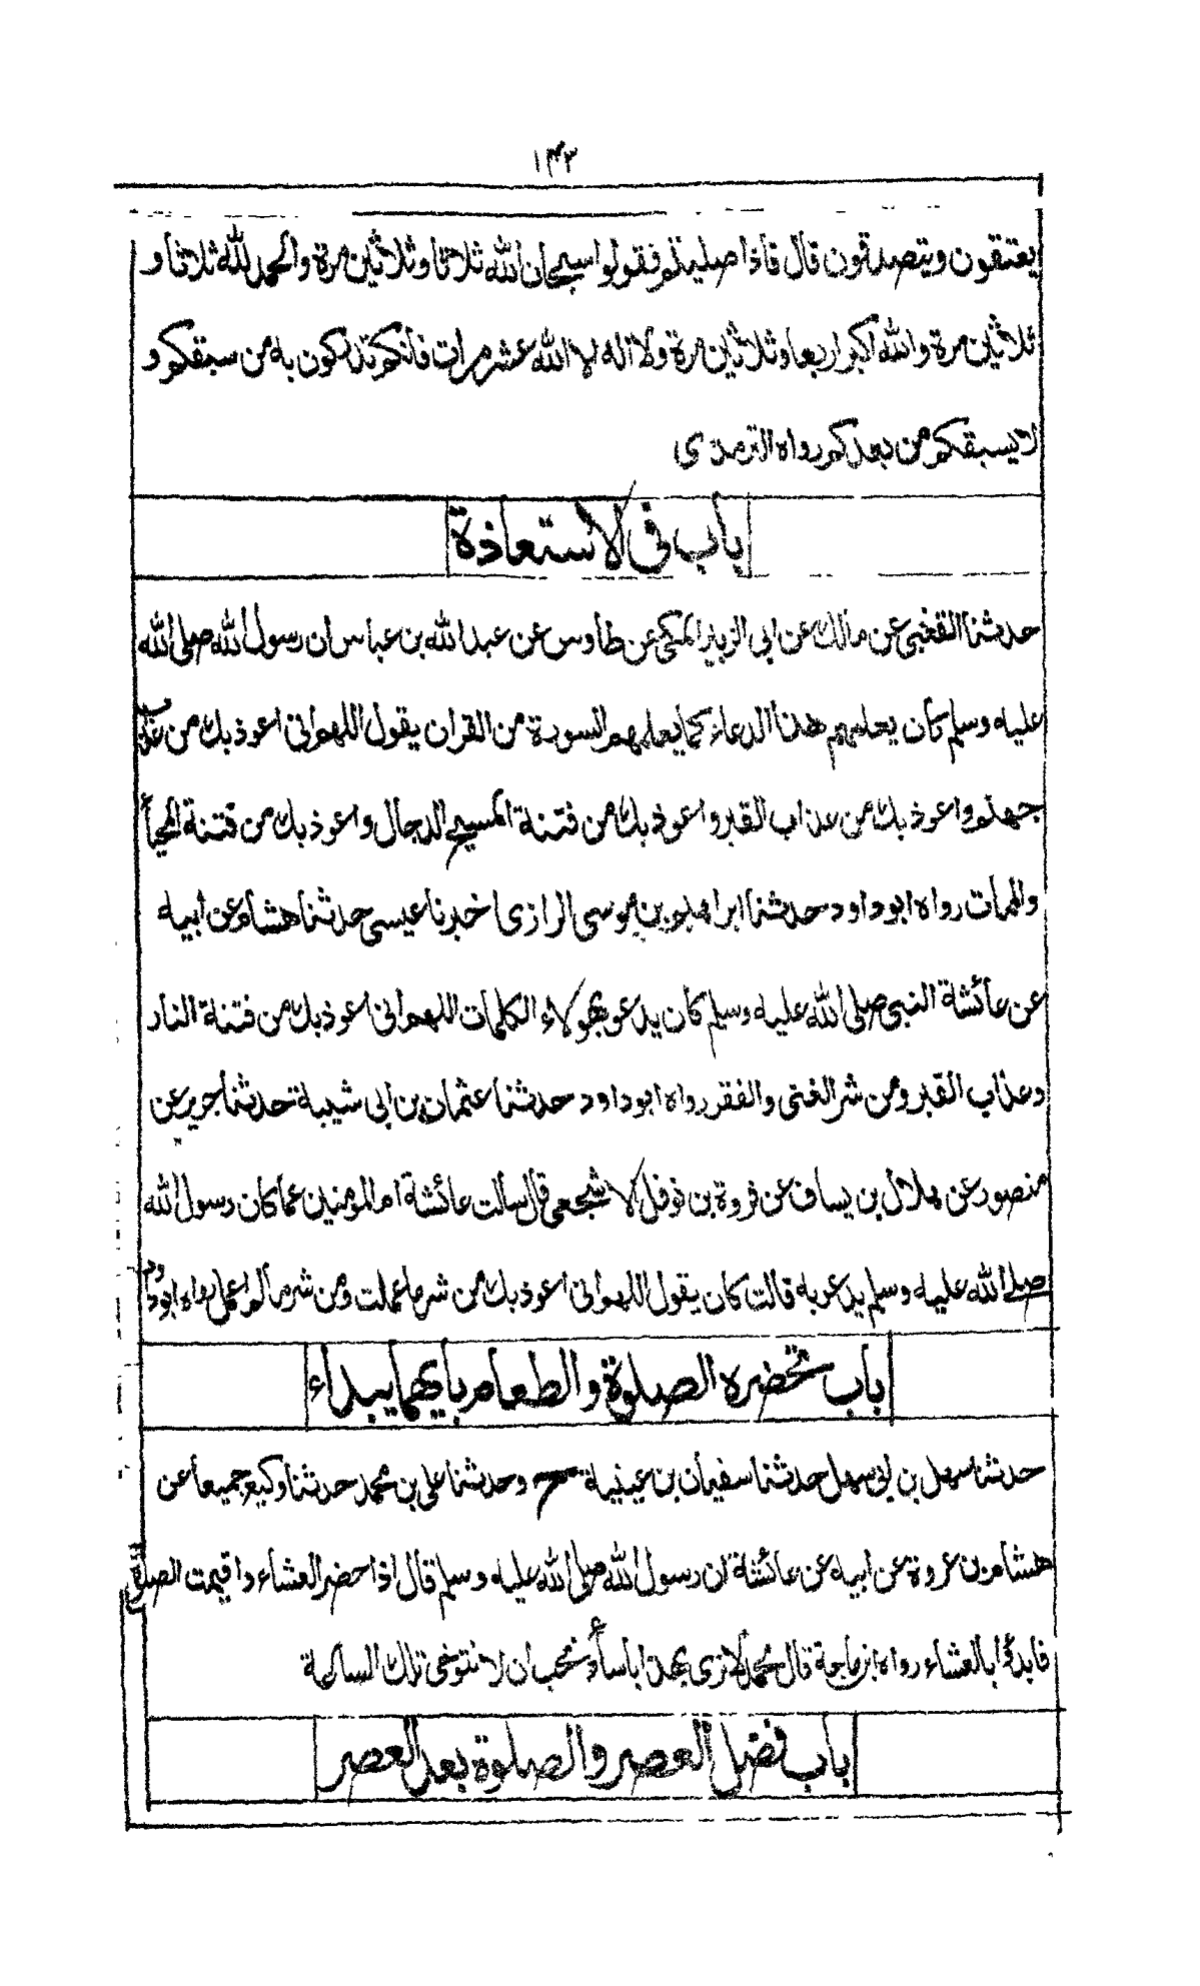 ۱۴۳
يعتقون ويتصدقون قال فاذا صليتم فقولوا سبحان الله ثلاثا وثلاثين مرة والحمد لله ثلاثا و
ثلاثين مرة والله اكبر اربعا وثلاثين مرة ولا اله الا الله عشر مرات فانكم تدركون به من سبقكم و
لا يسبقكم من بعدكم رواه الترمذي
باب فى الاستعاذة
حدثنا القعنبى عن مالك عن ابى الزبير المكى عن طاوس عن عبد الله بن عباس ان رسول الله صلى الله
عليه وسلم كان يعلمهم هذا الدعاء كما يعلمهم السورة من القران يقول اللهم انى اعوذ بك من عذاب
جهنم واعوذ بك من عذاب القبر واعوذ بك من فتنة المسيح الدجال واعوذ بك من فتنة المحيا
والممات رواه ابو داود حدثنا ابراهيم بن موسى الرازى اخبرنا عيسى حدثنا هشام عن ابيه
عن عائشة النبى صلى الله عليه وسلم كان يدعو بهؤلاء الكلمات اللهم انى اعوذ بك من فتنة النار
وعذاب القبر ومن شر الغنى والفقر رواه ابو داود حدثنا عثمان بن ابى شيبة حدثنا جرير عن
منصور عن هلال بن يساف عن فروة بن نوفل الاشجعى قال سالت عائشة ام المومنين عما كان رسول الله
صلى الله عليه وسلم يدعو به قالت كان يقول اللهم انى اعوذ بك من شر ما عملت ومن شر ما لم اعمل رواه ابو داود
باب تحضره الصلوة والطعام بأيهما يبداء
حدثنا سهل بن ابى سهل حدثنا سفيان بن عيينة ح وحدثنا على بن محمد حدثنا وكيع جميعا عن
هشام بن عروة عن ابيه عن عائشة ان رسول الله صلى الله عليه وسلم قال اذا حضر العشاء واقيمت الصلوة
فابدؤا بالعشاء رواه ابن ماجة قال محمد لا نرى بهذا باسا ونحب ان لا نتوخى تلك الساعة
باب فضل العصر والصلوة بعد العصر